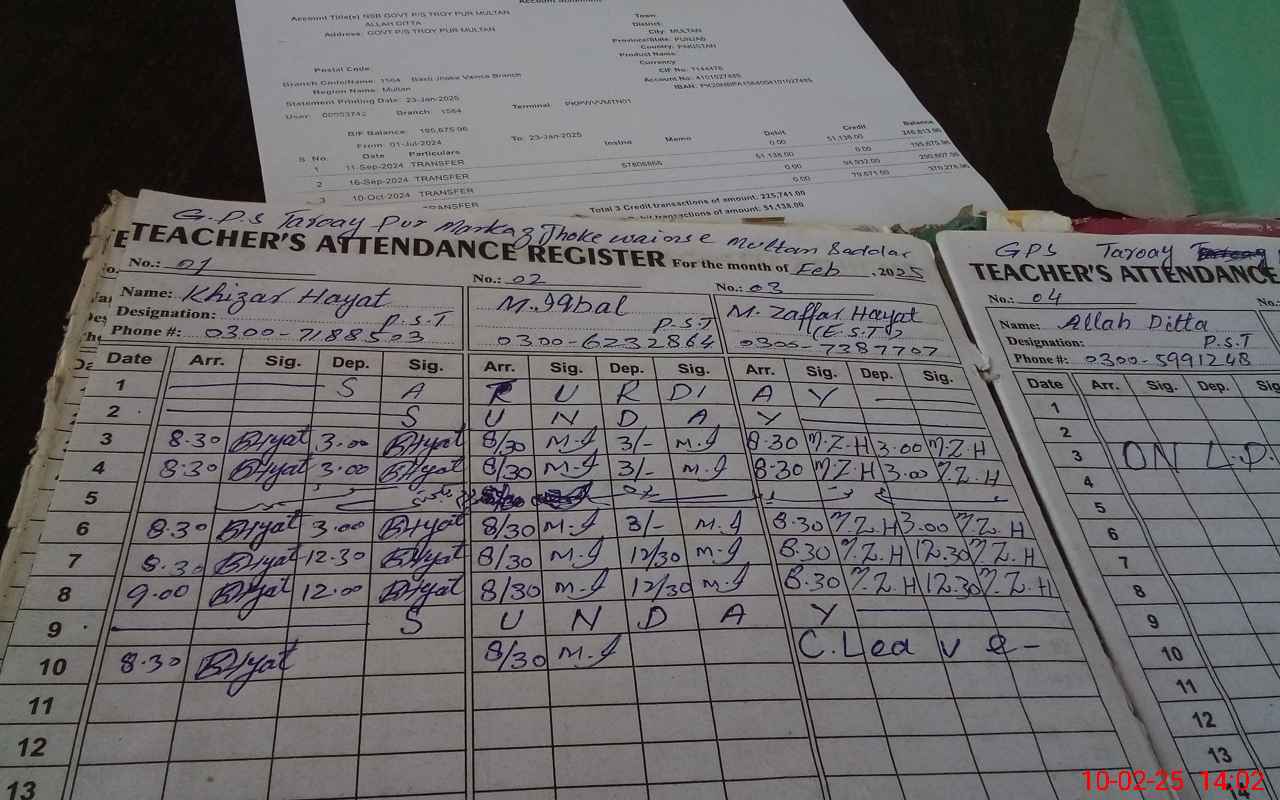 Account Statement
Account Title(s) NSB GOVT P/S TROY PUR MULTAN
ALLAH DITTA
Address: GOVT P/S TROY PUR MULTAN
Town:
District:
City: MULTAN
Province/State: PUNJAB
Country: PAKISTAN
Product Name:
Currency
CIF No: 7144476
Account No: 4101027485
Postal Code:
Branch Code/Name: 1564
Region Name: Multan
Statement Printing Date: 23-Jan-2025
Branch: 1564
Terminal:
B/F Balance: 195,675.96
From: 01-Jul-2024 To: 23-Jan-2025
S No. Date Particulars Instno Memo Debit Credit Balance
1 11-Sep-2024 TRANSFER 0.00 51,138.00 246,813.96
2 16-Sep-2024 TRANSFER 57805866 51,138.00 0.00 195,675.96
3 10-Oct-2024 TRANSFER 0.00 94,932.00
TRANSFER 0.00 79,671.00
Total 3 Credit transactions of amount: 225,741.00
transactions of amount: 51,138.00
G.P.S Taroay Pur Markaz Jhoke wainse Multan Saddar
TEACHER'S ATTENDANCE REGISTER For the month of Feb, 2025
No.: 01 No.: 02 No.: 03
Name: Khizar Hayat M. Iqbal M. Zaffar Hayat
Designation: P.S.T P.S.T (E.S.T)
Phone #: 0300-7188503 0300-6232864 0300-7387707
Date Arr. Sig. Dep. Sig. Arr. Sig. Dep. Sig. Arr. Sig. Dep. Sig.
1 S A T U R D A Y
2 S U N D A Y
3 8.30 BHyat 3.00 BHyat 8/30 M.I 3/- M.I 8.30 M.Z.H 3.00 M.Z.H
4 8.30 BHyat 3.00 BHyat 8/30 M.I 3/- M.I 8.30 M.Z.H 3.00 M.Z.H
5
6 8.30 BHyat 3.00 BHyat 8/30 M.I 3/- M.I 8.30 M.Z.H 3.00 M.Z.H
7 8.30 BHyat 12.30 BHyat 8/30 M.I 12/30 M.I 8.30 M.Z.H 12.30 M.Z.H
8 9.00 BHyat 12.00 BHyat 8/30 M.I 12/30 M.I 8.30 M.Z.H 12.30 M.Z.H
9 S U N D A Y
10 8.30 BHyat 8/30 M.I C.Leave
11
12
13
GPS Taroay
TEACHER'S ATTENDANCE
No.: 04
Name: Allah Ditta
Designation: P.S.T
Phone #: 0300-5991248
Date Arr. Sig. Dep.
1
2
3 ON L.P.
4
5
6
7
8
9
10
11
12
13
14
10-02-25 14:02